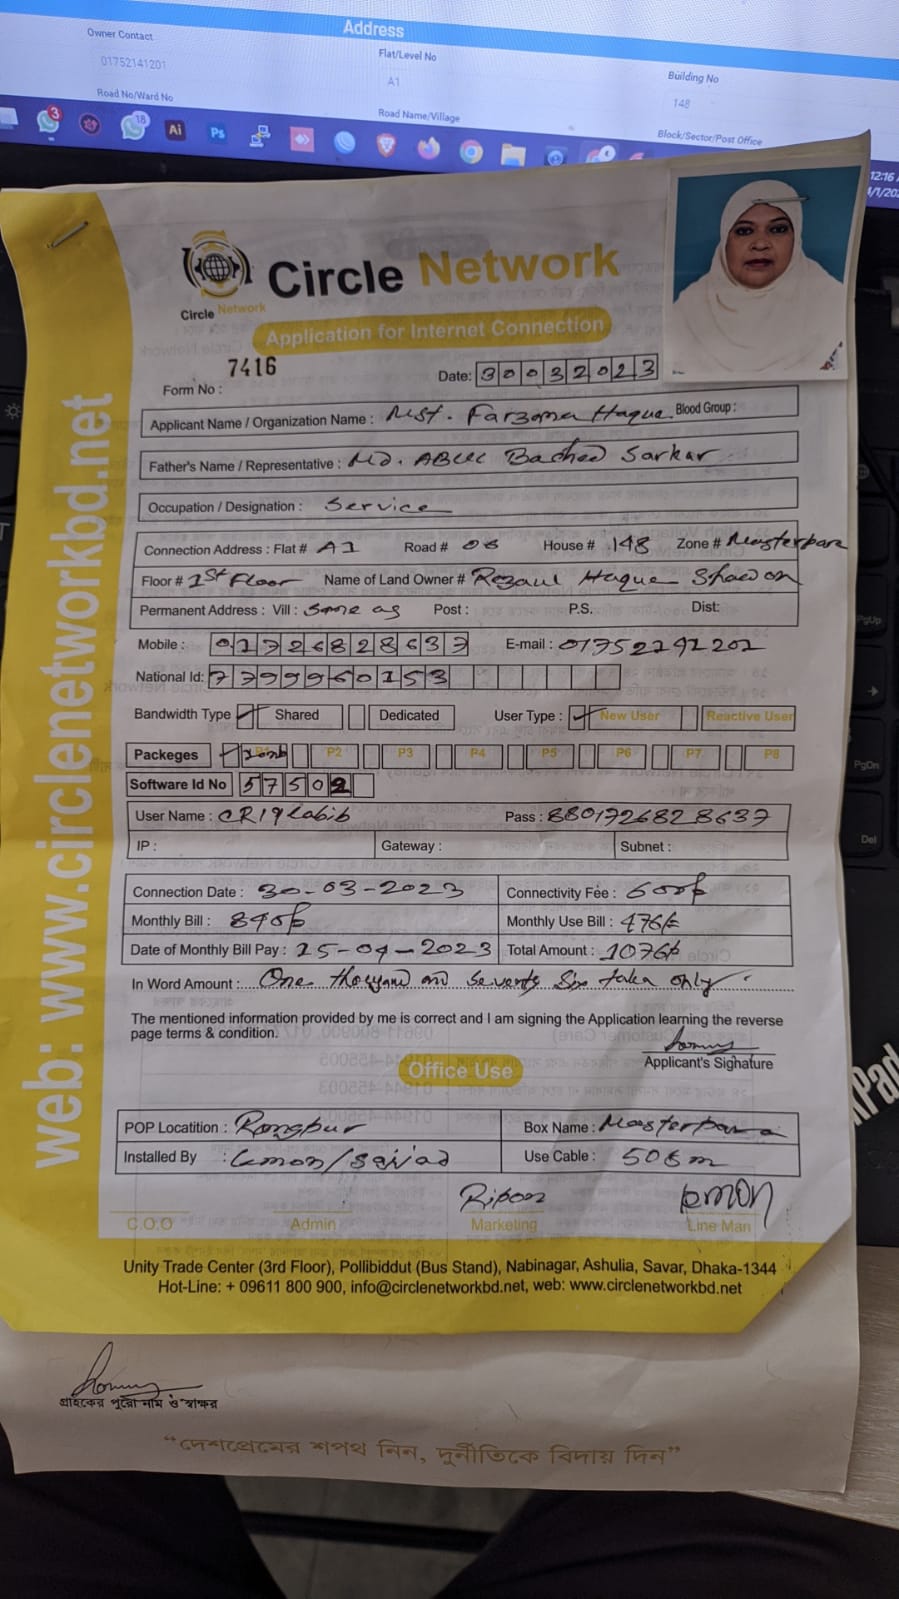 Address
Owner Contact
01752141201
Flat/Level No
A1
Building No
148
Road No/Ward No
Road Name/Village
Block/Sector/Post Office
3
18
Ai
Ps
12:16
Circle Network
Circle Network
Application for Internet Connection
7416
Form No :
Date: 30032023
Applicant Name / Organization Name : Mst. Farzana Haque Blood Group :
Father's Name / Representative : Md. ABUL Bashed Sarkar
Occupation / Designation : Service
Connection Address : Flat # A1 Road # 06 House # 148 Zone # Masterpara
Floor # 1st Floor Name of Land Owner # Rezaul Haque Shawon
Permanent Address : Vill : Same as Post : P.S. Dist:
Mobile : 01726828637 E-mail :
National Id: 7799960153
Bandwidth Type Shared Dedicated User Type : New User Reactive User
Packeges P1 P2 P3 P4 P5 P6 P7 P8
Software Id No 57502
User Name : Pass : 8801726828637
IP : Gateway : Subnet :
Connection Date : 30-03-2023 Connectivity Fee : 600/-
Monthly Bill : 840/- Monthly Use Bill : 476/-
Date of Monthly Bill Pay : 15-04-2023 Total Amount : 1076/-
In Word Amount : One thousand and Seventy Six taka only.
The mentioned information provided by me is correct and I am signing the Application learning the reverse
page terms & condition.
Applicant's Signature
Office Use
POP Locatition : Rangpur Box Name : Masterpara
Installed By : Lemon/Sajjad Use Cable : 505m
Ripon
C.O.O Admin Marketing Line Man
Unity Trade Center (3rd Floor), Pollibiddut (Bus Stand), Nabinagar, Ashulia, Savar, Dhaka-1344
Hot-Line: + 09611 800 900, info@circlenetworkbd.net, web: www.circlenetworkbd.net
web: www.circlenetworkbd.net
গ্রাহকের পুরো নাম ও স্বাক্ষর
“দেশপ্রেমের শপথ নিন, দুর্নীতিকে বিদায় দিন”
PgUp
PgDn
Del